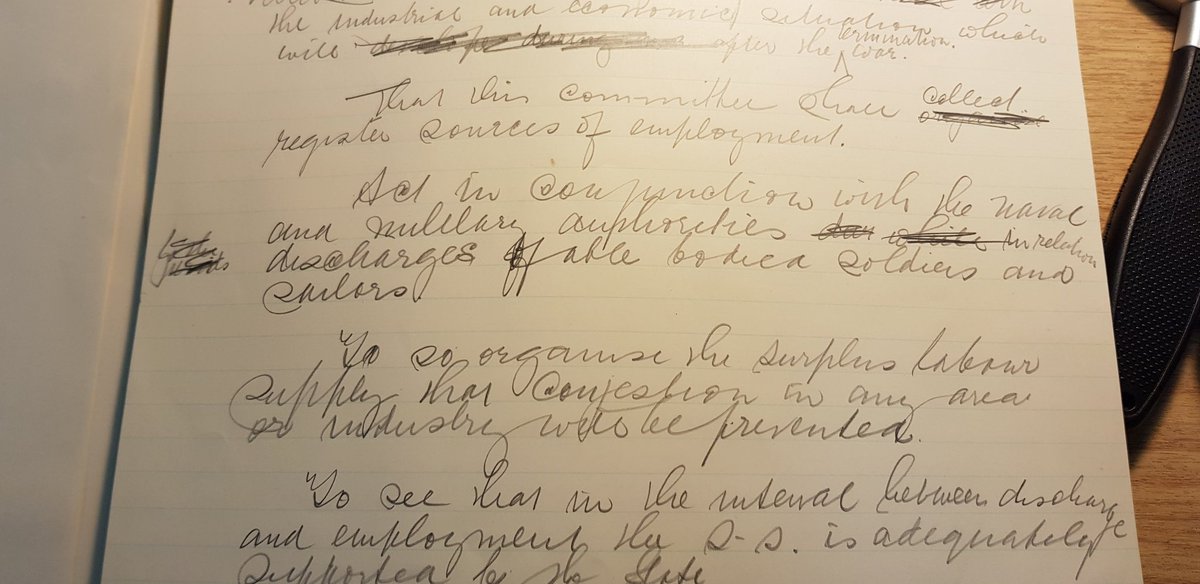 the industrial and economic situation which
will after the termination war.
That this committee shall collect
register sources of employment.
Act in conjunction with the naval
and military authorities in relation
discharges of able bodied soldiers and
sailors.
To so organise the surplus labour
supply that conjestion in any area
or industry will be prevented.
To see that in the interval between discharge
and employment the S.S. is adequately
supported by the State